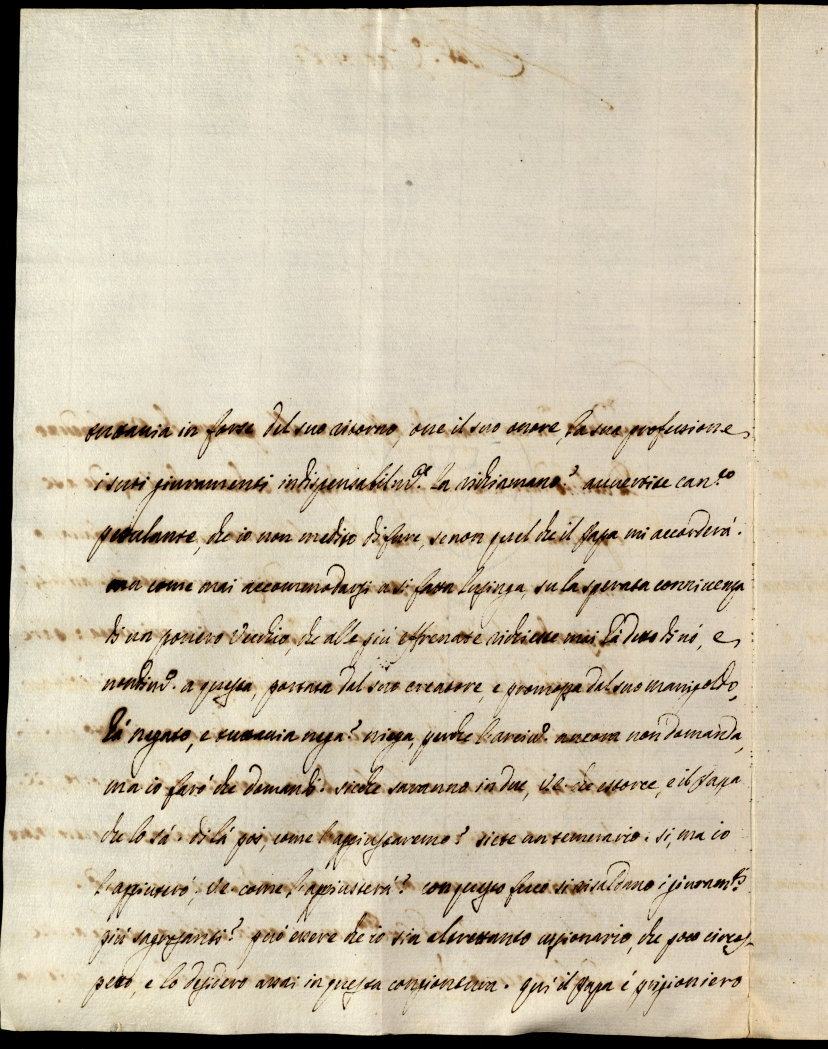 tuttavia in forse del suo ritorno, ove il suo onore, la sua professione
i suoi giuramenti la richiamano? avvertite can.to
petulante, che io non medito di fare, se non quel che il Papa mi accorderà.
ma come mai accommodarsi a si fatta lusinga, su la sperata connivenza
di un povero Vecchio, che alle più effrenate richieste mai hà detto di nó, e
a questa, portata dal suo creatore, e promossa dal suo manigoldo,
há negato, e tuttavia nega? niega, perche ancora non domanda,
ma io faró che domandi. sicche saranno in due, che estorce, e il Papa
che lo sá. di lá poi, come l'aggiustaremo? siete un temerario. si, ma io
l'aggiusteró, come l'aggiusterá? con questo fuoco si risaldano i giuram.ti
piú sagrosanti? puó essere che io sia altrettanto visionario, che poco circos-
petto, e lo desidero assai in questa congiontura. qui il Papa é prigioniero